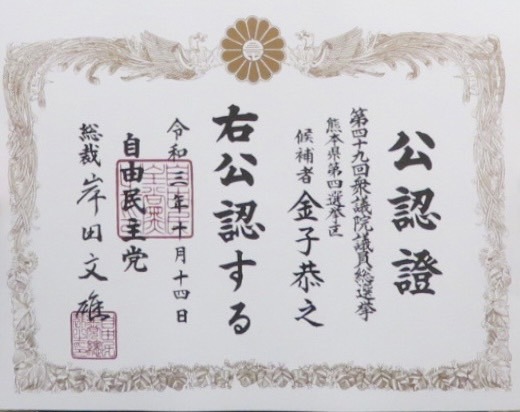 公認證
第四十九回衆議院議員総選挙
熊本県第四選挙区
候補者 金子恭之
右公認する
令和三年十月十四日
自由民主党
総裁 岸田文雄